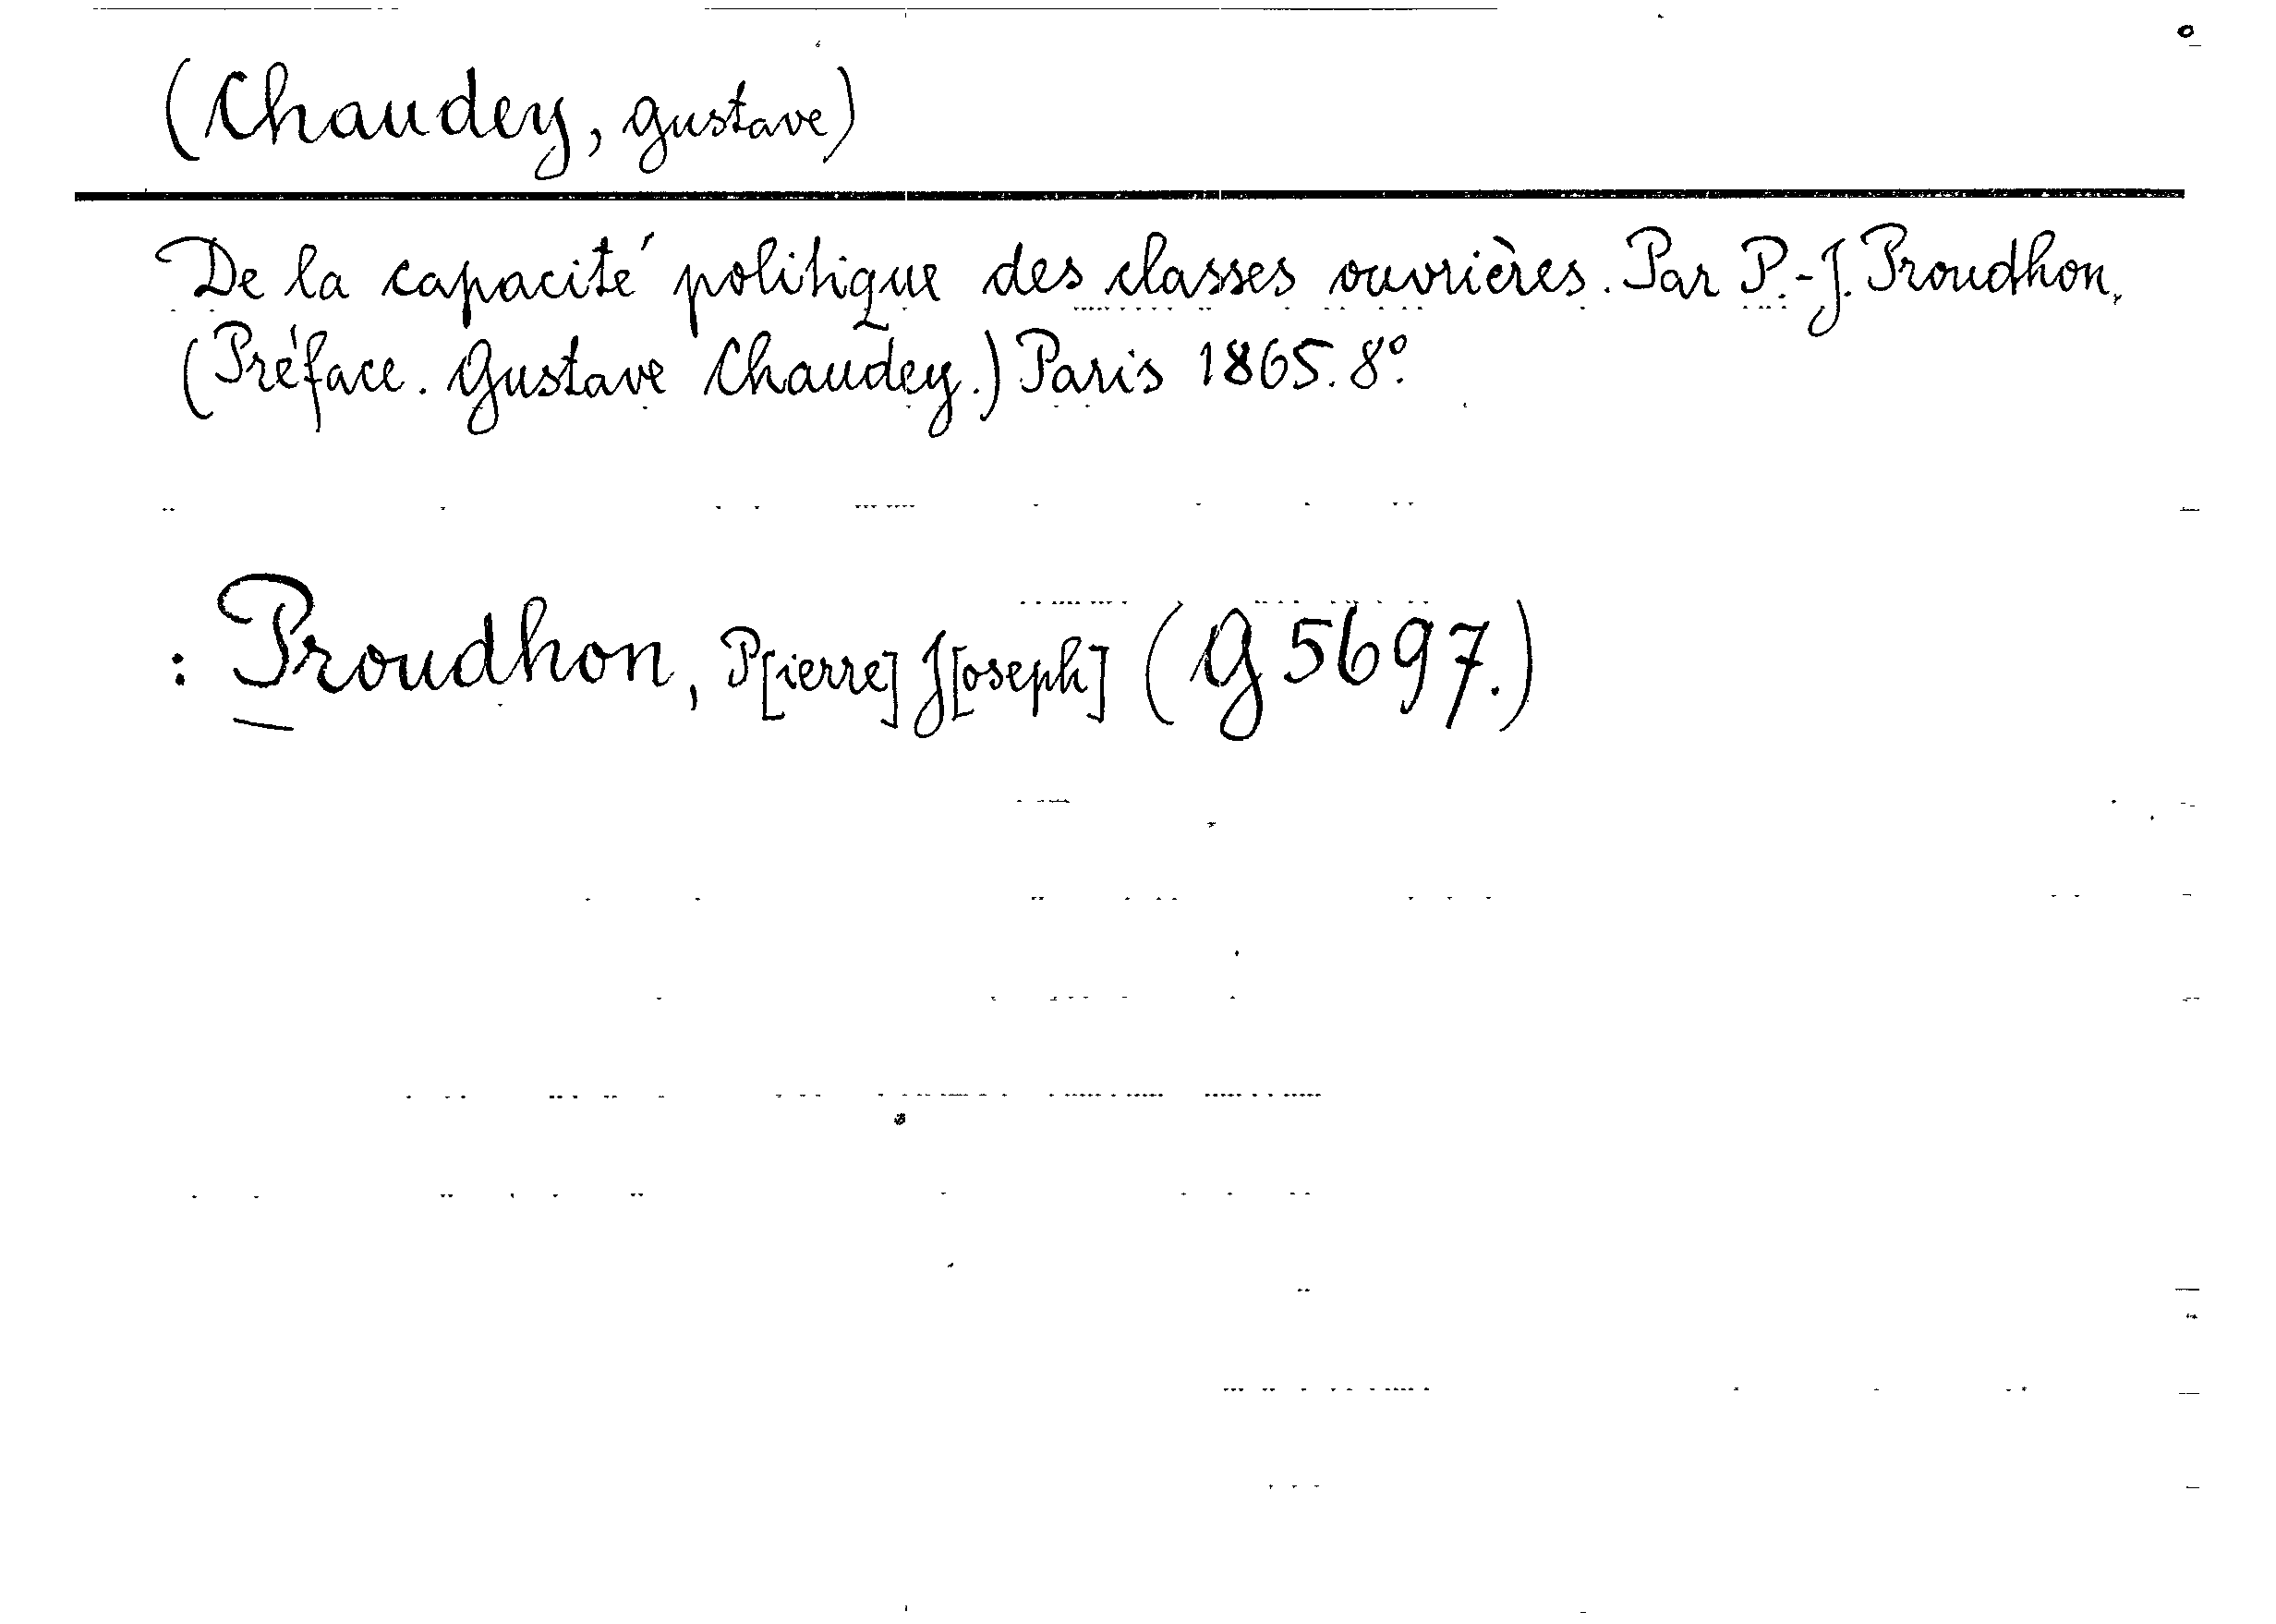 (Chaudey, Gustave)
De la capacité politique des classes ouvrières. Par P.-J. Proudhon.
(Préface. Gustave Chaudey.) Paris 1865. 8°.
: Proudhon, P[ierre] J[oseph] (G 5697.)